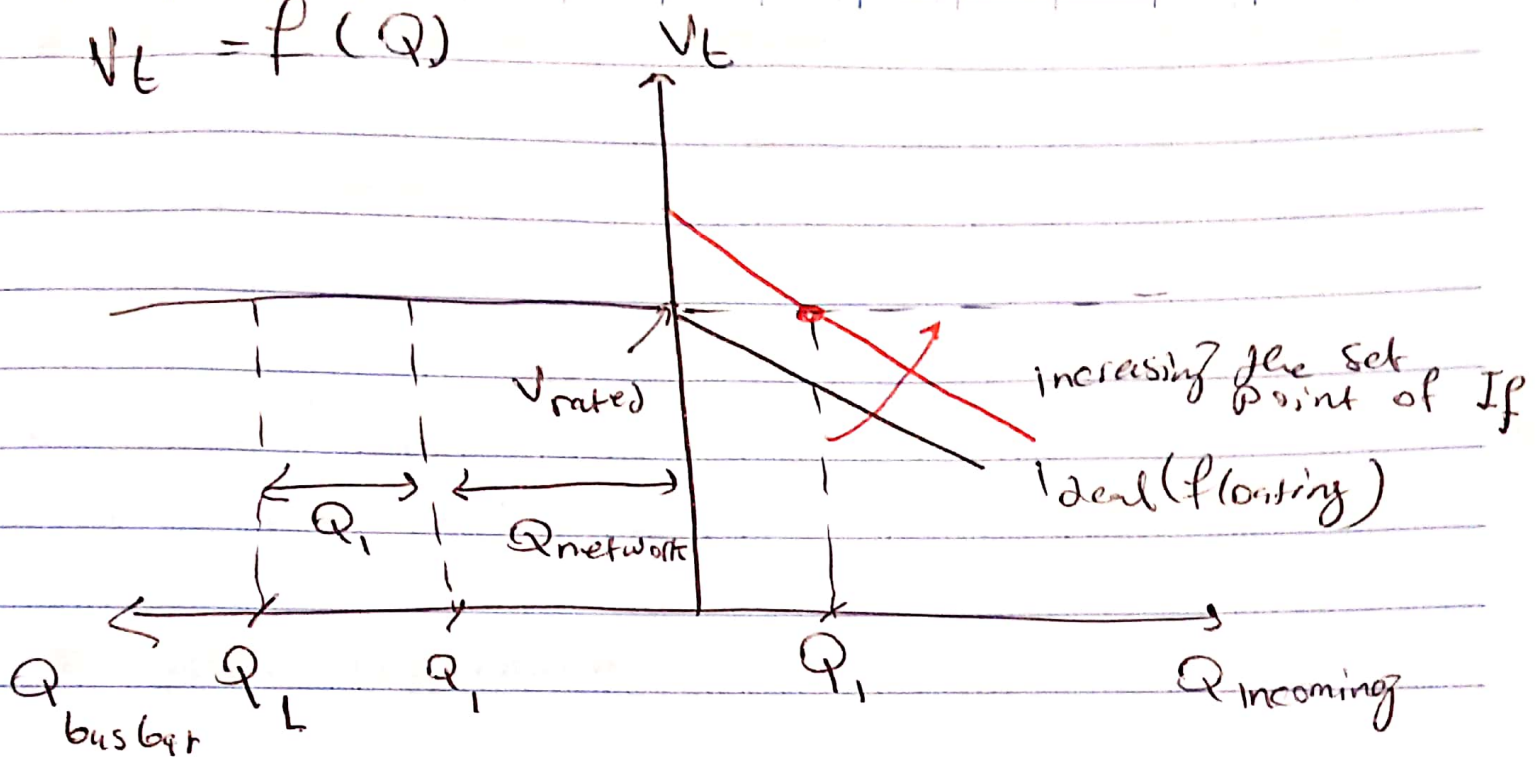 Vt = f (Q)
Vt
Vrated
increasing the set
point of If
Ideal (floating)
Q1
Qnetwork
QL
Q1
Q1
Qincoming
Q
busbar